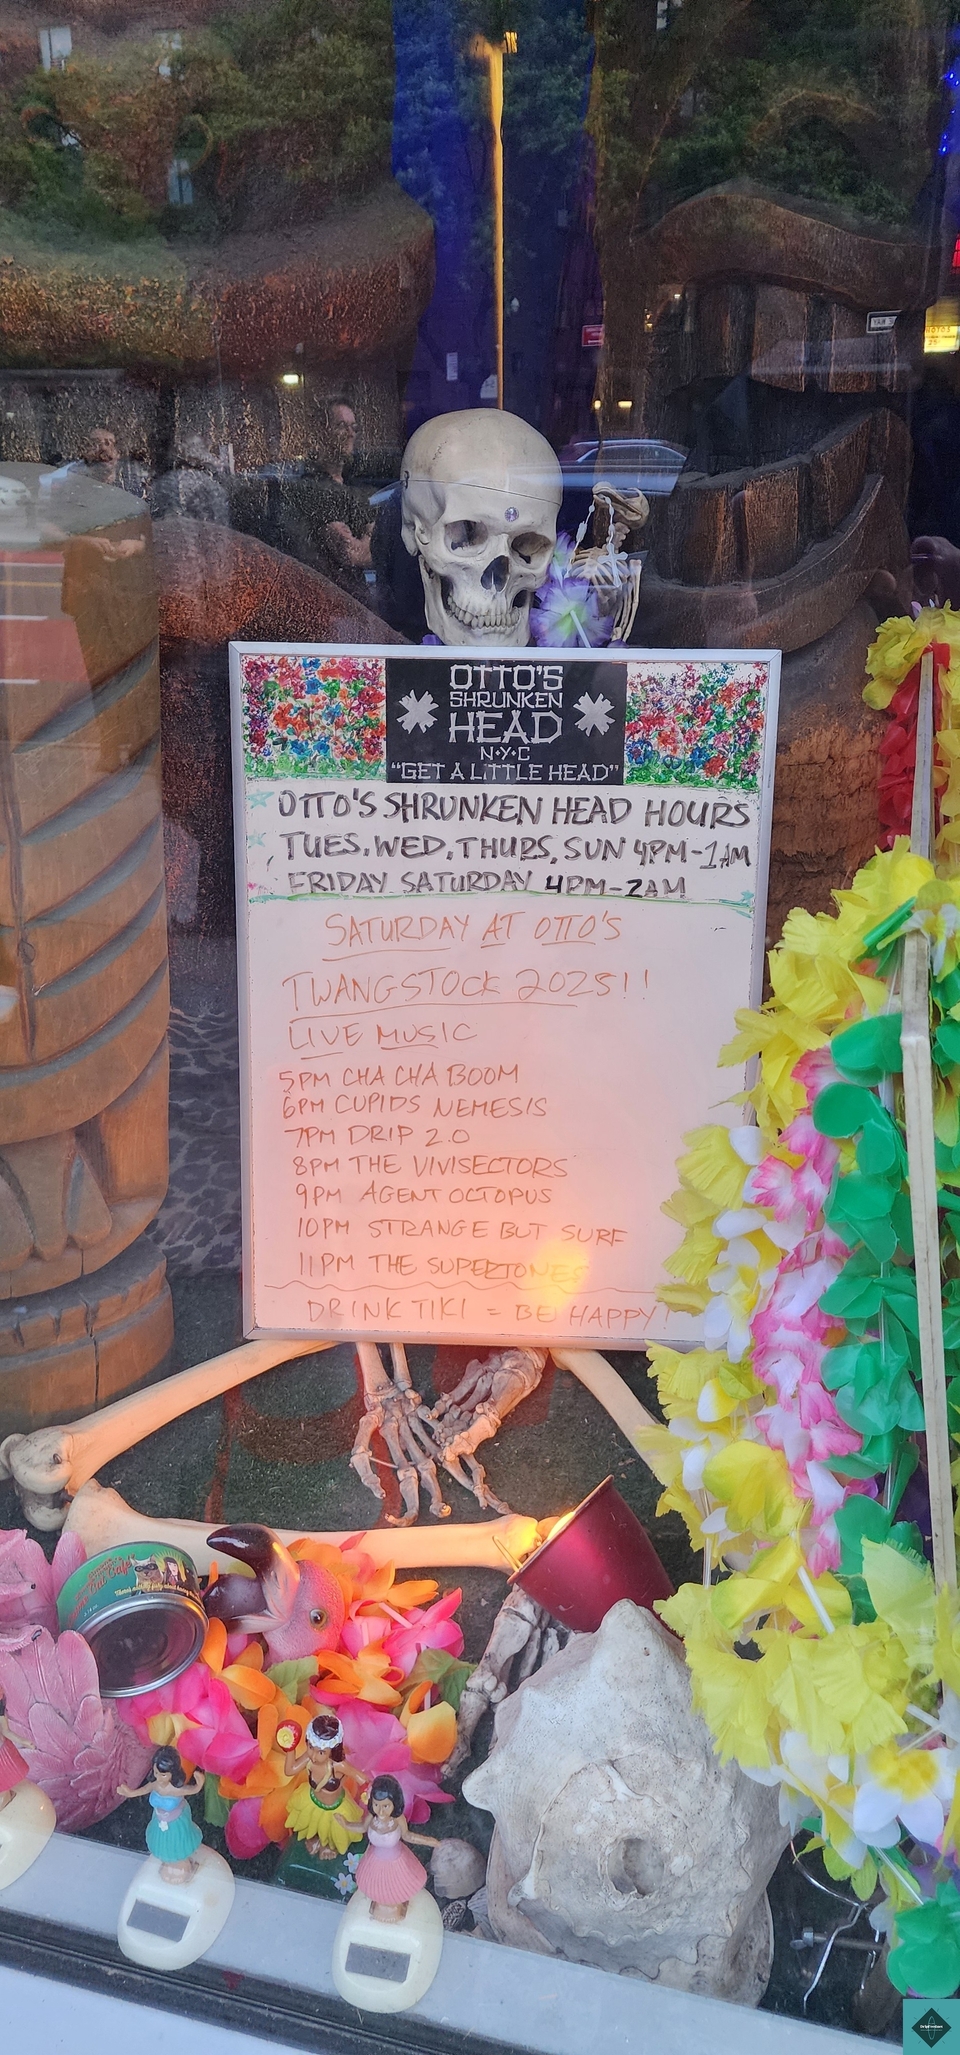 OTTO'S
SHRUNKEN
HEAD
N·Y·C
"GET A LITTLE HEAD"
OTTO'S SHRUNKEN HEAD HOURS
TUES, WED, THURS, SUN 4PM-1AM
FRIDAY SATURDAY 4PM-2AM
SATURDAY AT OTTO'S
TWANGSTOCK 2025!!
LIVE MUSIC
5PM CHA CHA BOOM
6PM CUPIDS NEMESIS
7PM DRIP 2.0
8PM THE VIVISECTORS
9PM AGENT OCTOPUS
10PM STRANGE BUT SURF
11PM THE SUPERTONES
DRINK TIKI = BE HAPPY!